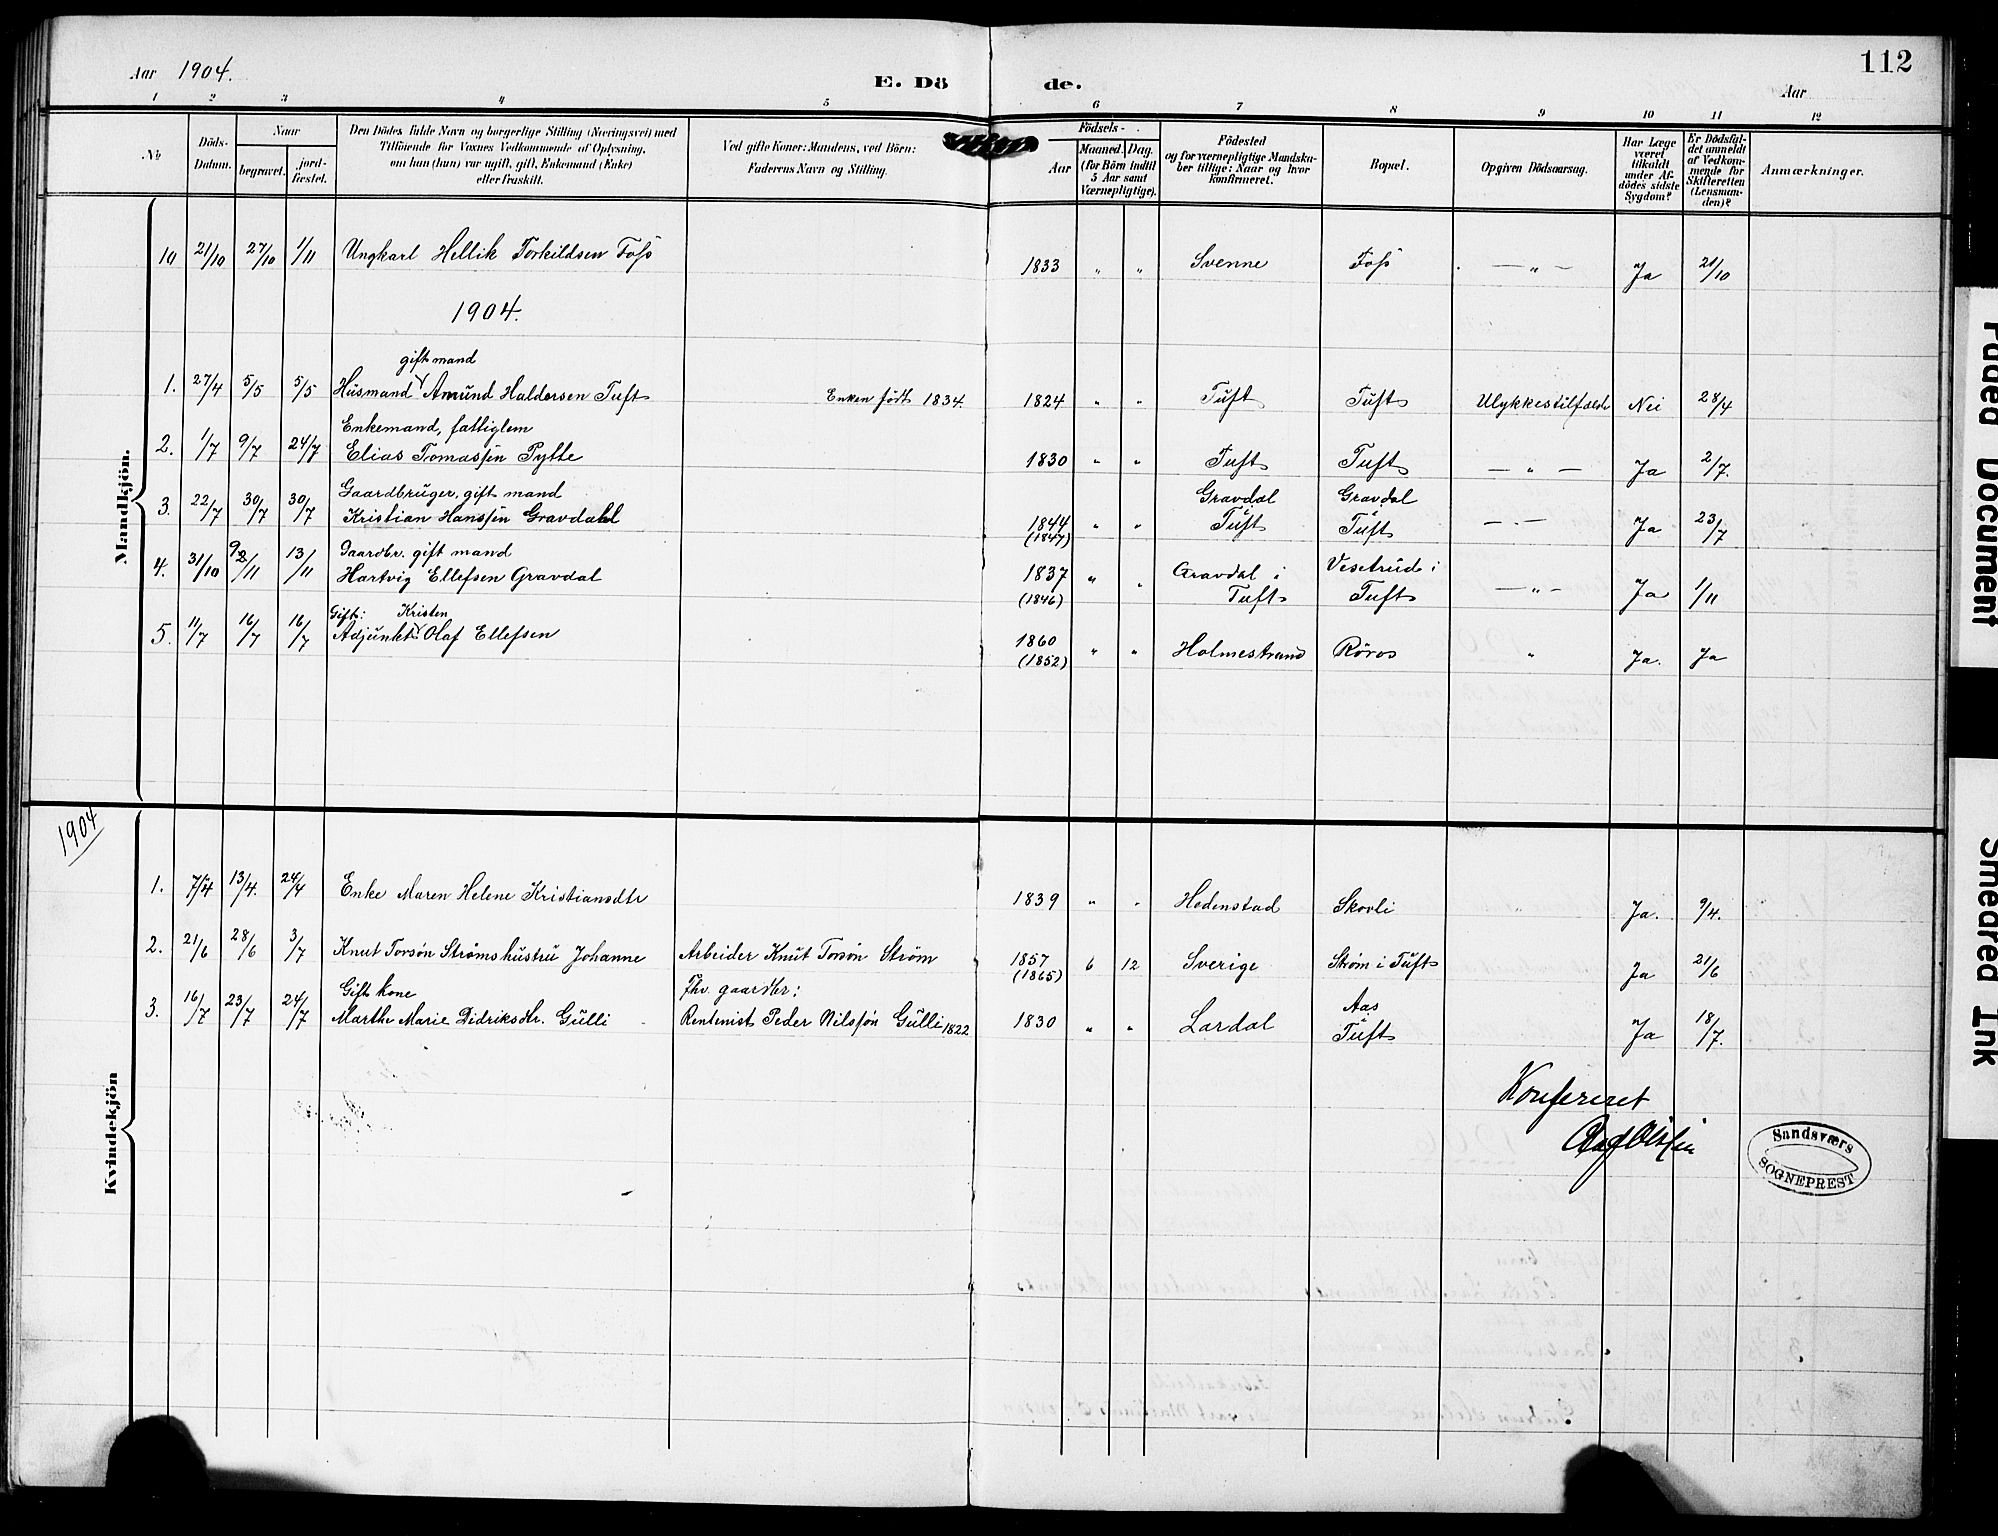 112
Aar 1904.
E. Dö de.
Aar
1 2 3 4 5 6 7 8 9 10 11 12
№
Döds-
Datum.
Naar
begravet.
jord-
fæstet.
Den Dödes fulde Navn og borgerlige Stilling (Næringsvei) med
Tilföiende for Voxnes Vedkommende af Oplysning,
om han (hun) var ugift, gift, Enkemand (Enke)
eller fraskilt.
Ved gifte Koner: Mandens, ved Börn:
Faderens Navn og Stilling.
Födsels-
Aar
Maaned. Dag.
(for Börn indtil
5 Aar samt
Værnepligtige).
Födested
og for værnepligtige Mandska-
ber tillige: Naar og hvor
konfirmeret.
Bopæl.
Opgiven Dödsaarsag.
Har Læge
været
tilkaldt
under Af-
dödes sidste
Sygdom?
Er Dödsfal-
det anmeldt
af Vedkom-
mende for
Skifteretten
(Lensman-
den)?
Anmærkninger.
Mandkjön.
10 21/10 27/10 1/11 Ungkarl Hellik Torkildsen Foss 1833 " " Svenne Foss — " — Ja 21/10
1904.
gift mand
1. 27/4 5/5 5/5 Husmand Amund Haldorsen Tuft Enken født 1834. 1824 " " Tuft Tuft Ulykkestilfælde Nei 28/4
Enkemand, fattiglem
2. 1/7 9/7 24/7 Elias Tomassen Pytte 1830 " " Tuft Tuft — " — Ja 2/7.
Gaardbruger, gift mand Gravdal Gravdal
3. 22/7 30/7 30/7 Kristian Hanssen Gravdahl 1844 " " Tuft Tuft — " — Ja 23/7
(1847)
Gaardbr. gift mand
4. 31/10 9/11 13/11 Hartvig Ellefsen Gravdal 1837 " " Gravdal i Vesetrud i
(1846) Tuft Tuft — " — Ja 1/11
Gift: Kristen
5. 11/7 16/7 16/7 Adjunkt Olaf Ellefsen 1860 " " Holmestrand Röros " Ja. Ja
(1852)
Kvindekjön
1904
1. 7/4 13/4. 24/4 Enke Maren Helene Kristiansdtr 1839 " " Hedenstad Skovli Ja. 9/4.
2. 21/6 28/6 3/7 Knut Torsøn Strømshustru Johanne Arbeider Knut Torsøn Strøm 1857 6 12 Sverige Strøm i Tuft Ja 21/6
(1865)
Gift kone Fhv. gaardbr: Aas
3. 16/7 23/7 24/7 Marthe Marie Didriksdtr. Gulli Rentenist Peder Nilssøn Gulli 1822 1830 " " Lardal Tuft Ja 18/7.
Konfereret
Sandsværs
SOGNEPREST
Faded Document
Smeared Ink